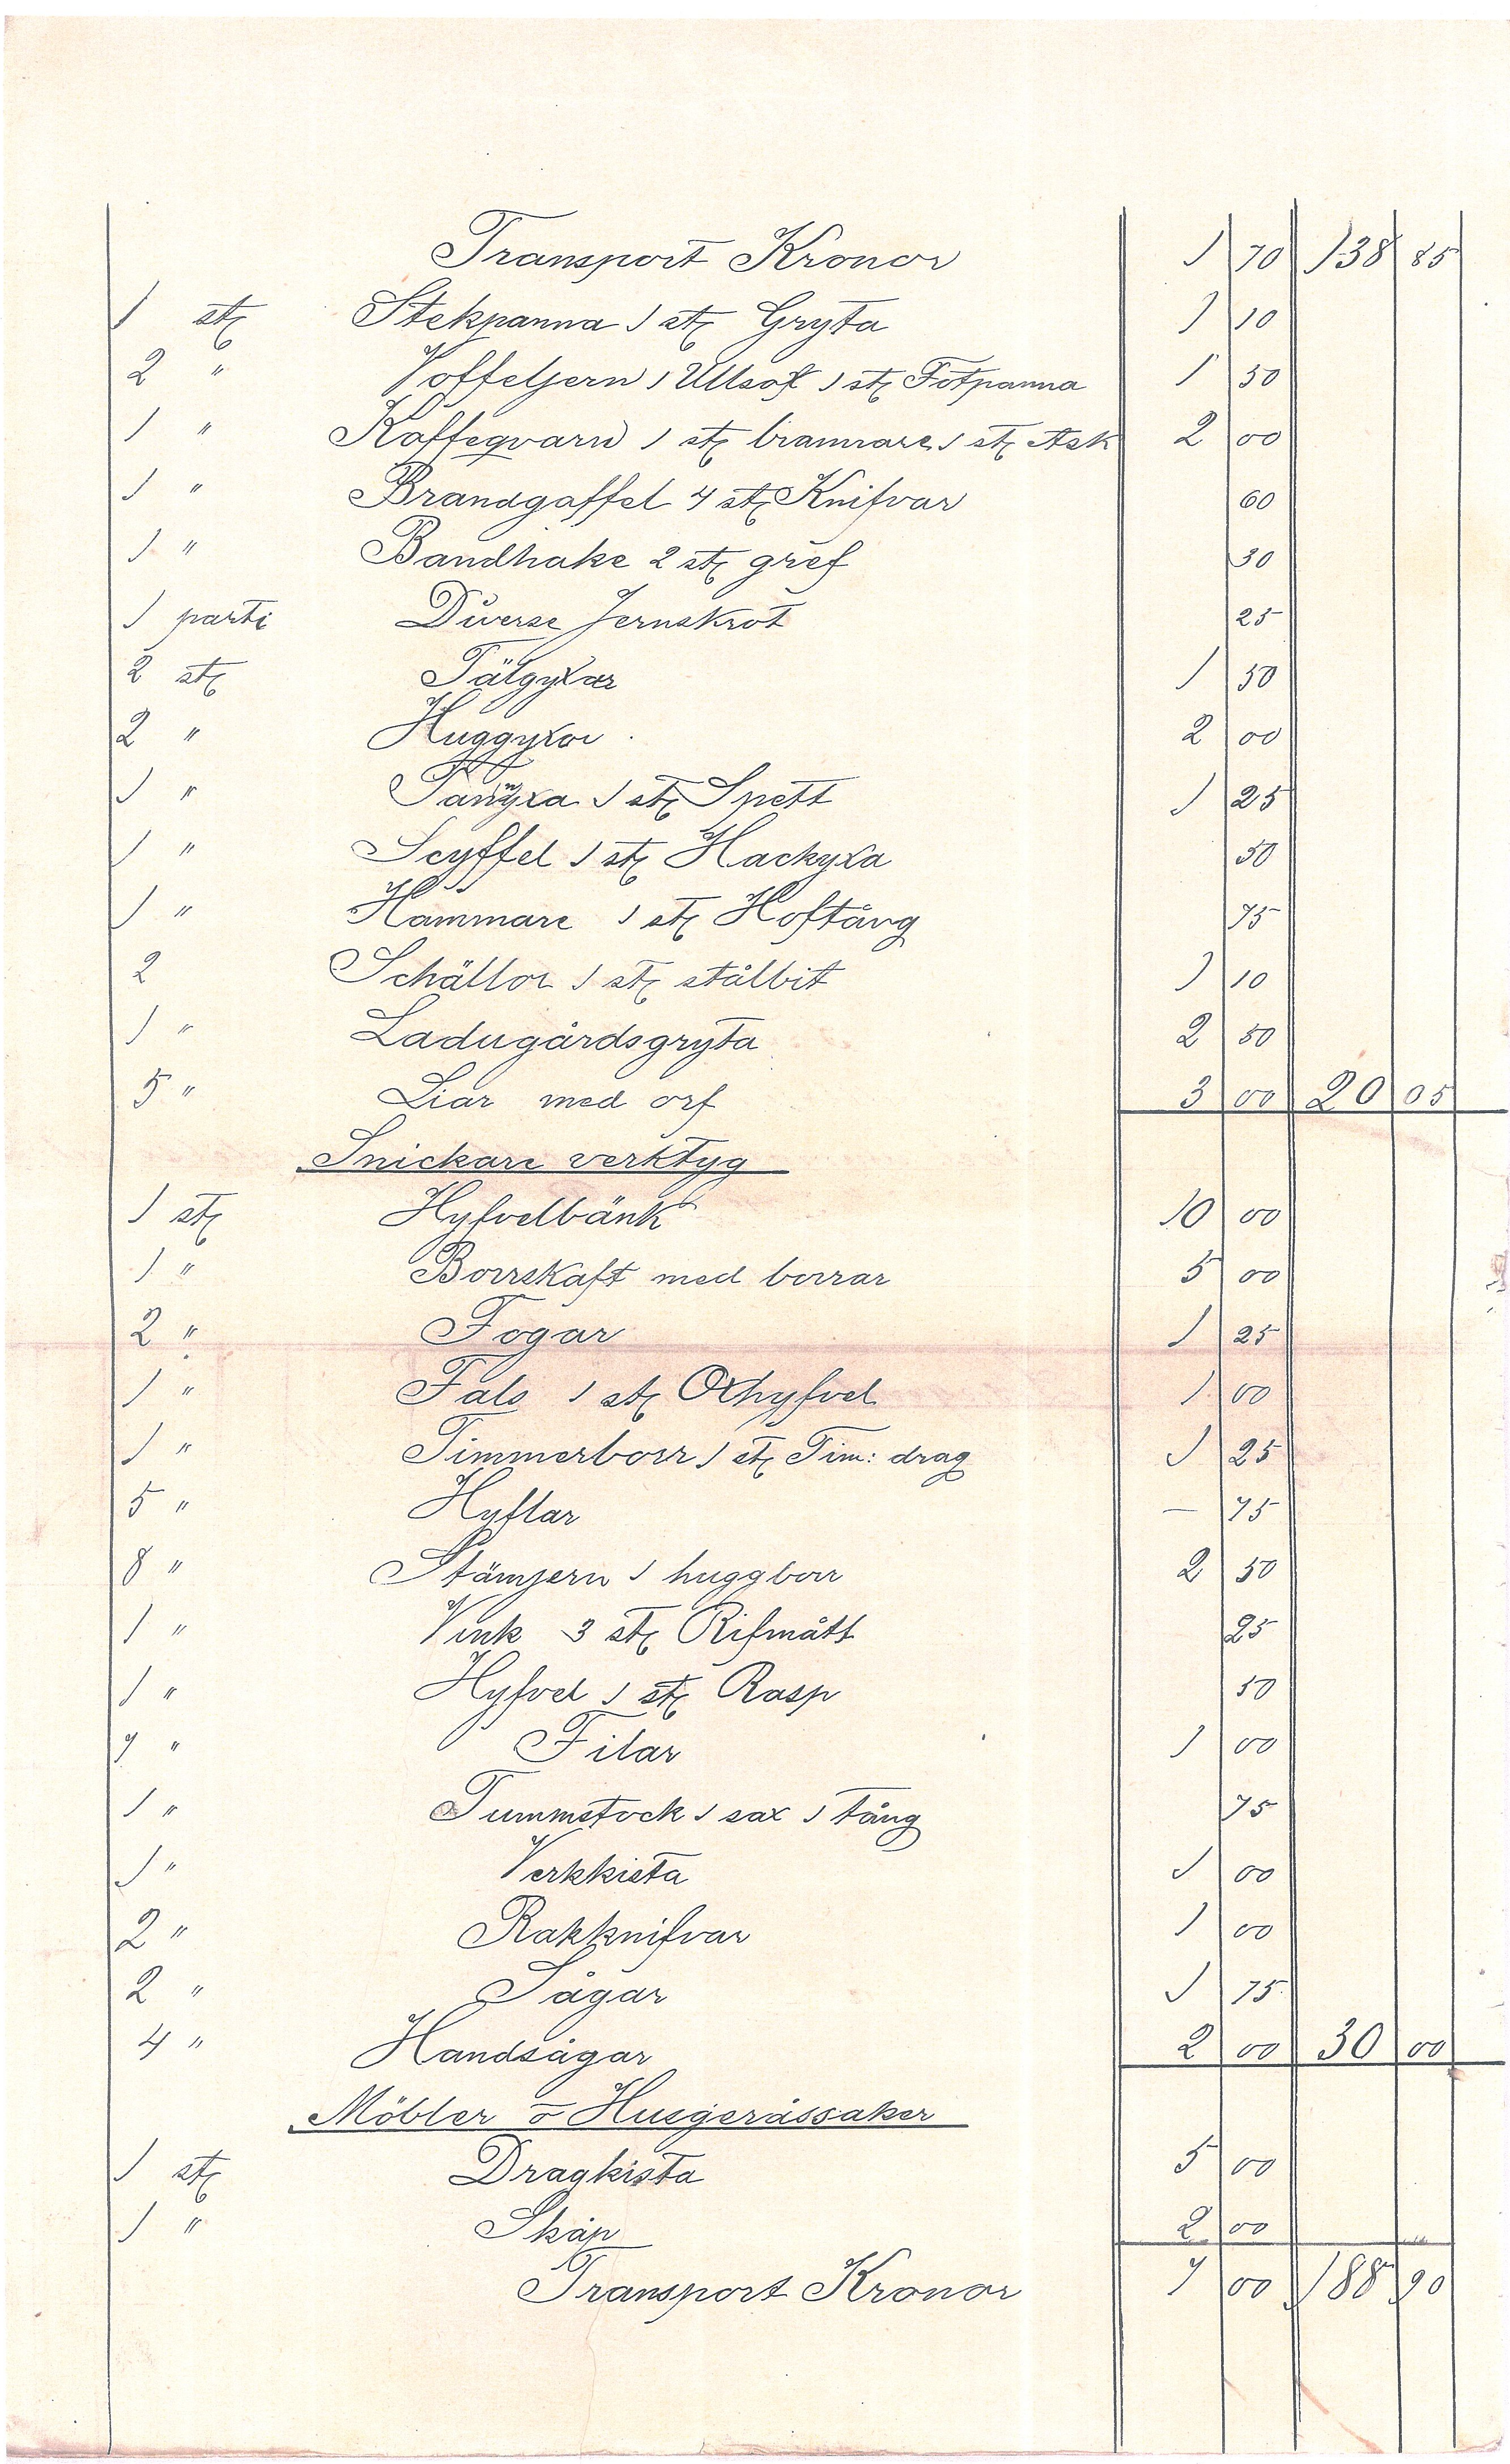 Transport Kronor 1 70 138 85
1 st Stekpanna 1 st Gryta 1 10
2 " Voffeljern 1 Ullsax 1 st Fotpanna 1 50
1 " Kaffeqvarn 1 st brännare 1 st Ask 2 00
1 " Brandgaffel 4 st Knifvar 60
1 " Bandhake 2 st gref 30
1 parti Diverse Jernskrot 25
2 st Tälgyxor 1 50
2 " Huggyxor 2 00
1 " Tanyxa 1 st Spett 1 25
1 " Scyffel 1 st Hackyxa 50
1 " Hammare 1 st Hoftång 75
2 Schällor 1 st stålbit 1 10
1 " Ladugårdsgryta 2 50
5 " Liar med orf 3 00 20 05
Snickare verktyg
1 st Hyfvelbänk 10 00
1 " Borrskaft med borrar 5 00
2 " Fogar 1 25
1 " Fals 1 st Oxhyfvel 1 00
1 " Timmerborr 1 st Tim: drag 1 25
5 " Hyflar — 75
8 " Stämjern 1 huggborr 2 50
1 " Vink 3 st Rifmått 25
1 " Hyfvel 1 st Rasp 50
7 " Filar 1 00
1 " Tummstock 1 sax 1 tång 75
1 " Verkkista 1 00
2 " Rakknifvar 1 00
2 " Sågar 1 75
4 " Handsågar 2 00 30 00
Möbler o Husgeråssaker
1 st Dragkista 5 00
1 " Skåp 2 00
Transport Kronor 7 00 188 90